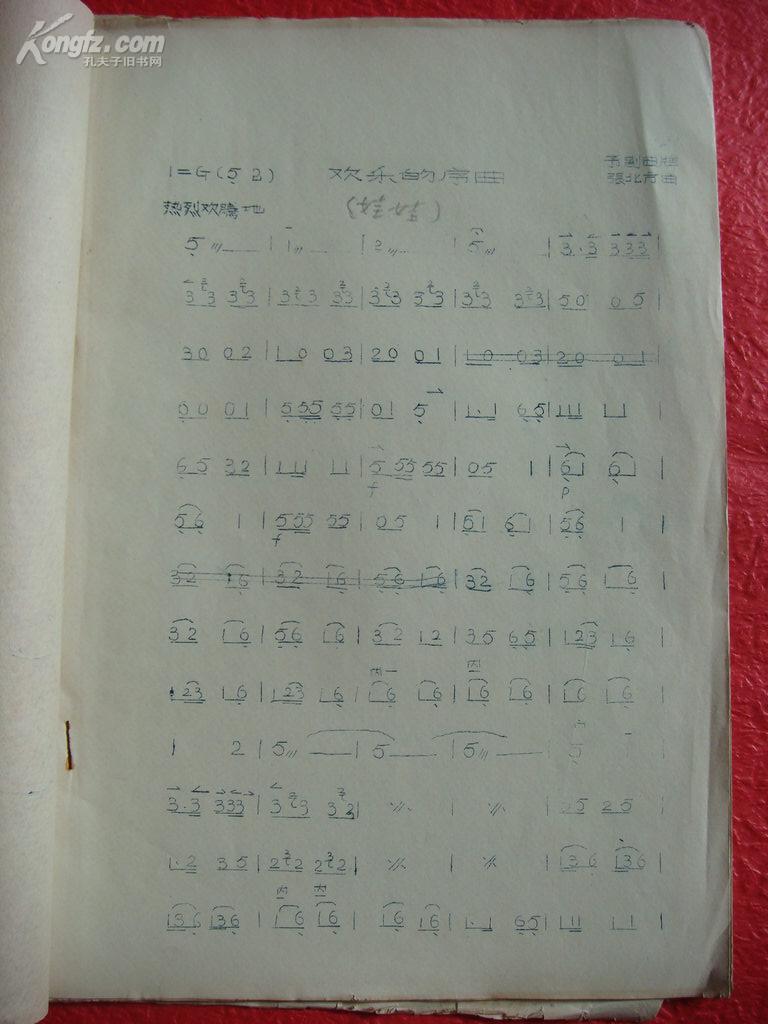 Kongfz.com
孔夫子旧书网
1=G(5 2) 欢乐的序曲 予剧曲牌
張北方曲
热烈欢腾地
5 /// | 1 /// | 2 /// | 5 /// | 3·3 333 |
3 3 3 3 | 3 3 33 | 3 3 3 3 | 3 3 3 3 | 50 05 |
30 02 | 10 03 | 20 01 | 10 03 | 20 01 |
60 01 | 555 55 | 01 5 | 1·1 65 | 111 11 |
65 32 | 111 11 | 555 55 | 05 1 | 61 61 |
f p
56 1 | 555 55 | 05 1 | 51 61 | 56 1 |
f
32 16 | 32 16 | 56 16 | 32 16 | 56 16 |
32 16 | 56 16 | 32 12 | 35 65 | 123 16 |
内 内
123 16 | 123 16 | 16 16 | 16 16 | 16 16 |
1 2 | 5 /// | 5 | 5 /// | 5
3·3 333 | 3 3 3 32 | ·//· | ·//· | 25 25 |
1·2 35 | 2 2 2 2 | ·//· | ·//· | 136 136 |
内 内
136 136 | 16 16 | 16 16 | 1·1 65 | 111 11 |